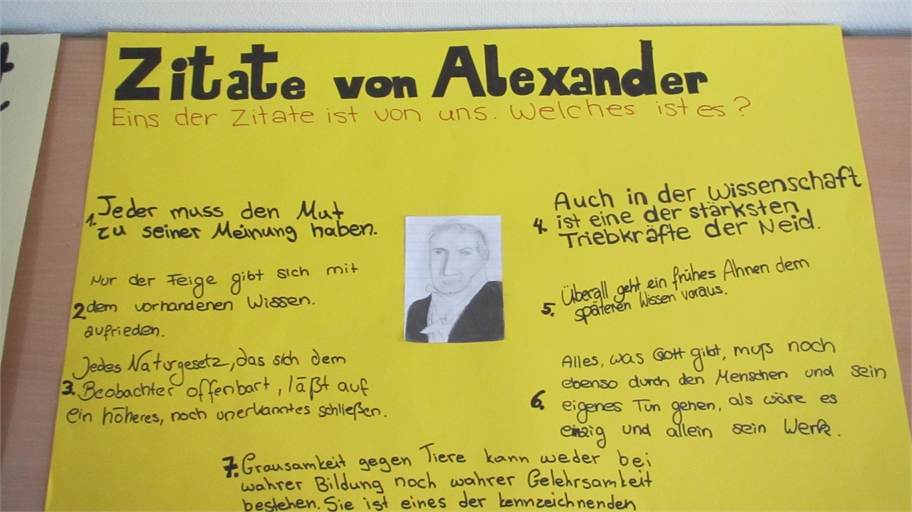 Zitate von Alexander
Eins der Zitate ist von uns. Welches ist es?
1. Jeder muss den Mut
zu seiner Meinung haben.
Nur der Feige gibt sich mit
2. dem vorhandenen Wissen.
zufrieden.
Jedes Naturgesetz, das sich dem
3. Beobachter offenbart, läßt auf
ein höheres, noch unerkanntes schließen.
Auch in der Wissenschaft
4. ist eine der stärksten
Triebkräfte der Neid.
Überall geht ein frühes Ahnen dem
5. späteren Wissen voraus.
Alles, was Gott gibt, muß noch
ebenso durch den Menschen und sein
6. eigenes Tun gehen, als wäre es
einzig und allein sein Werk.
7. Grausamkeit gegen Tiere kann weder bei
wahrer Bildung noch wahrer Gelehrsamkeit
bestehen. Sie ist eines der kennzeichnenden